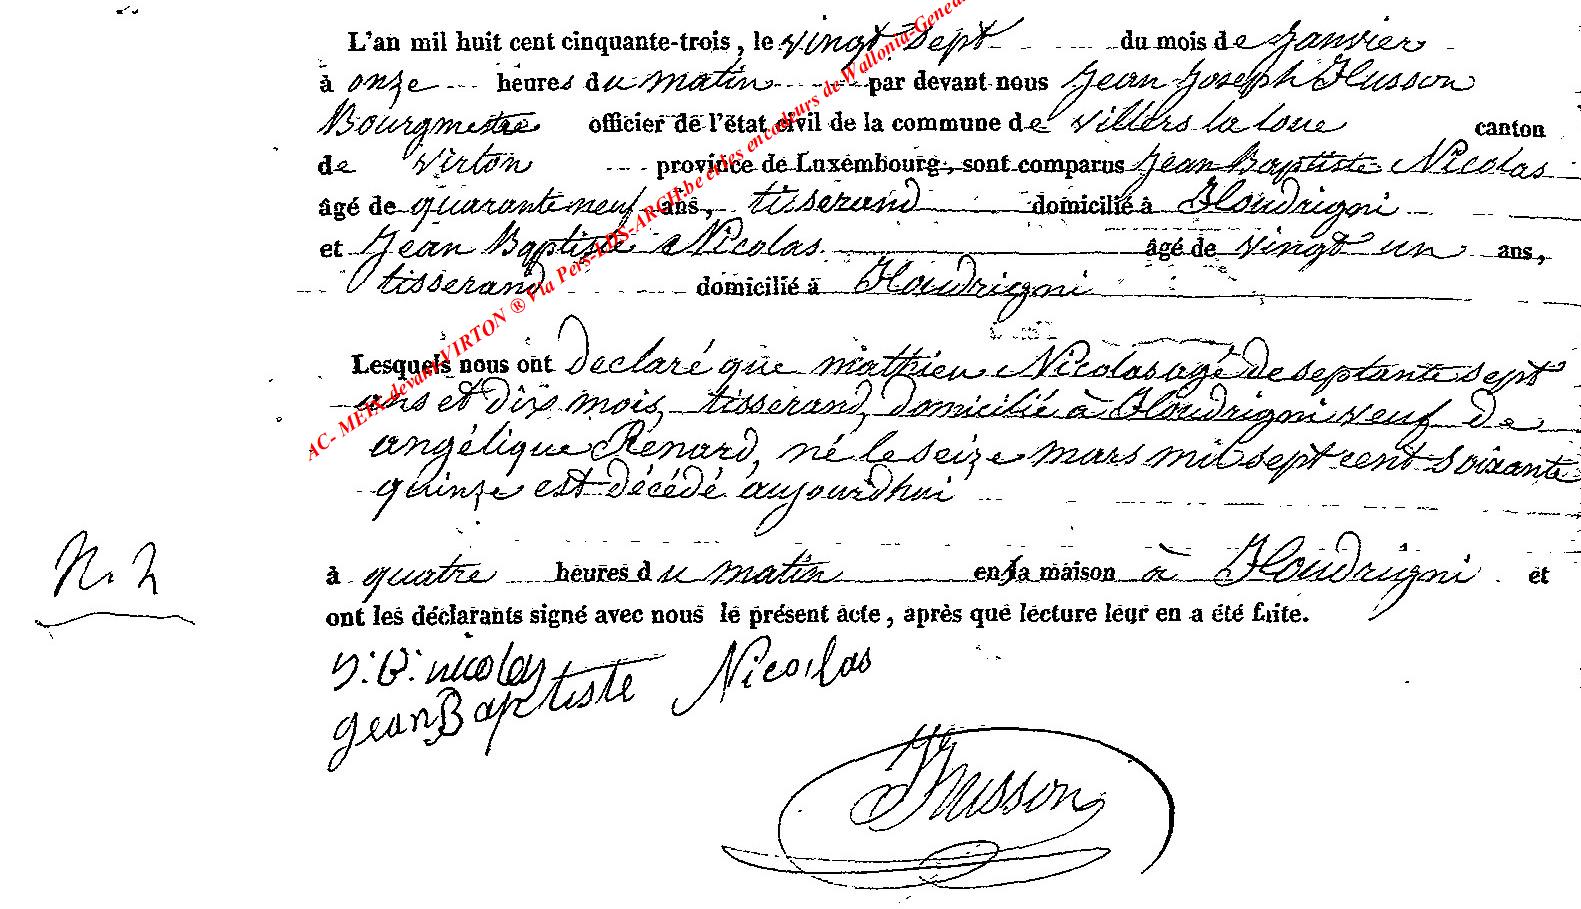 L'an mil huit cent cinquante-trois, le vingt sept du mois de Janvier
à onze heures du matin par devant nous Jean Joseph Husson
Bourgmestre officier de l'état civil de la commune de villers la loue canton
de Virton province de Luxembourg, sont comparus Jean Baptiste Nicolas
âgé de quarante neuf ans, tisserand domicilié à Houdrigni
et Jean Baptiste Nicolas âgé de vingt un ans,
tisserand domicilié à Houdrigni
Lesquels nous ont declaré que mathieu Nicolas agé de septante sept
ans et dix mois, tisserand, domicilié à Houdrigni veuf de
angélique Renard, né le seize mars mil sept cent soixante
quinze est décédé aujourdhui
N. 2
à quatre heures du matin en sa maison à Houdrigni et
ont les déclarants signé avec nous le présent acte, après que lecture leur en a été faite.
J. B. nicolas
jean Baptiste Nicolas
Husson
AC- MEIX-devant-VIRTON ® Via Pers-LDS-ARCH.be et les encodeurs de Wallonia-Genea